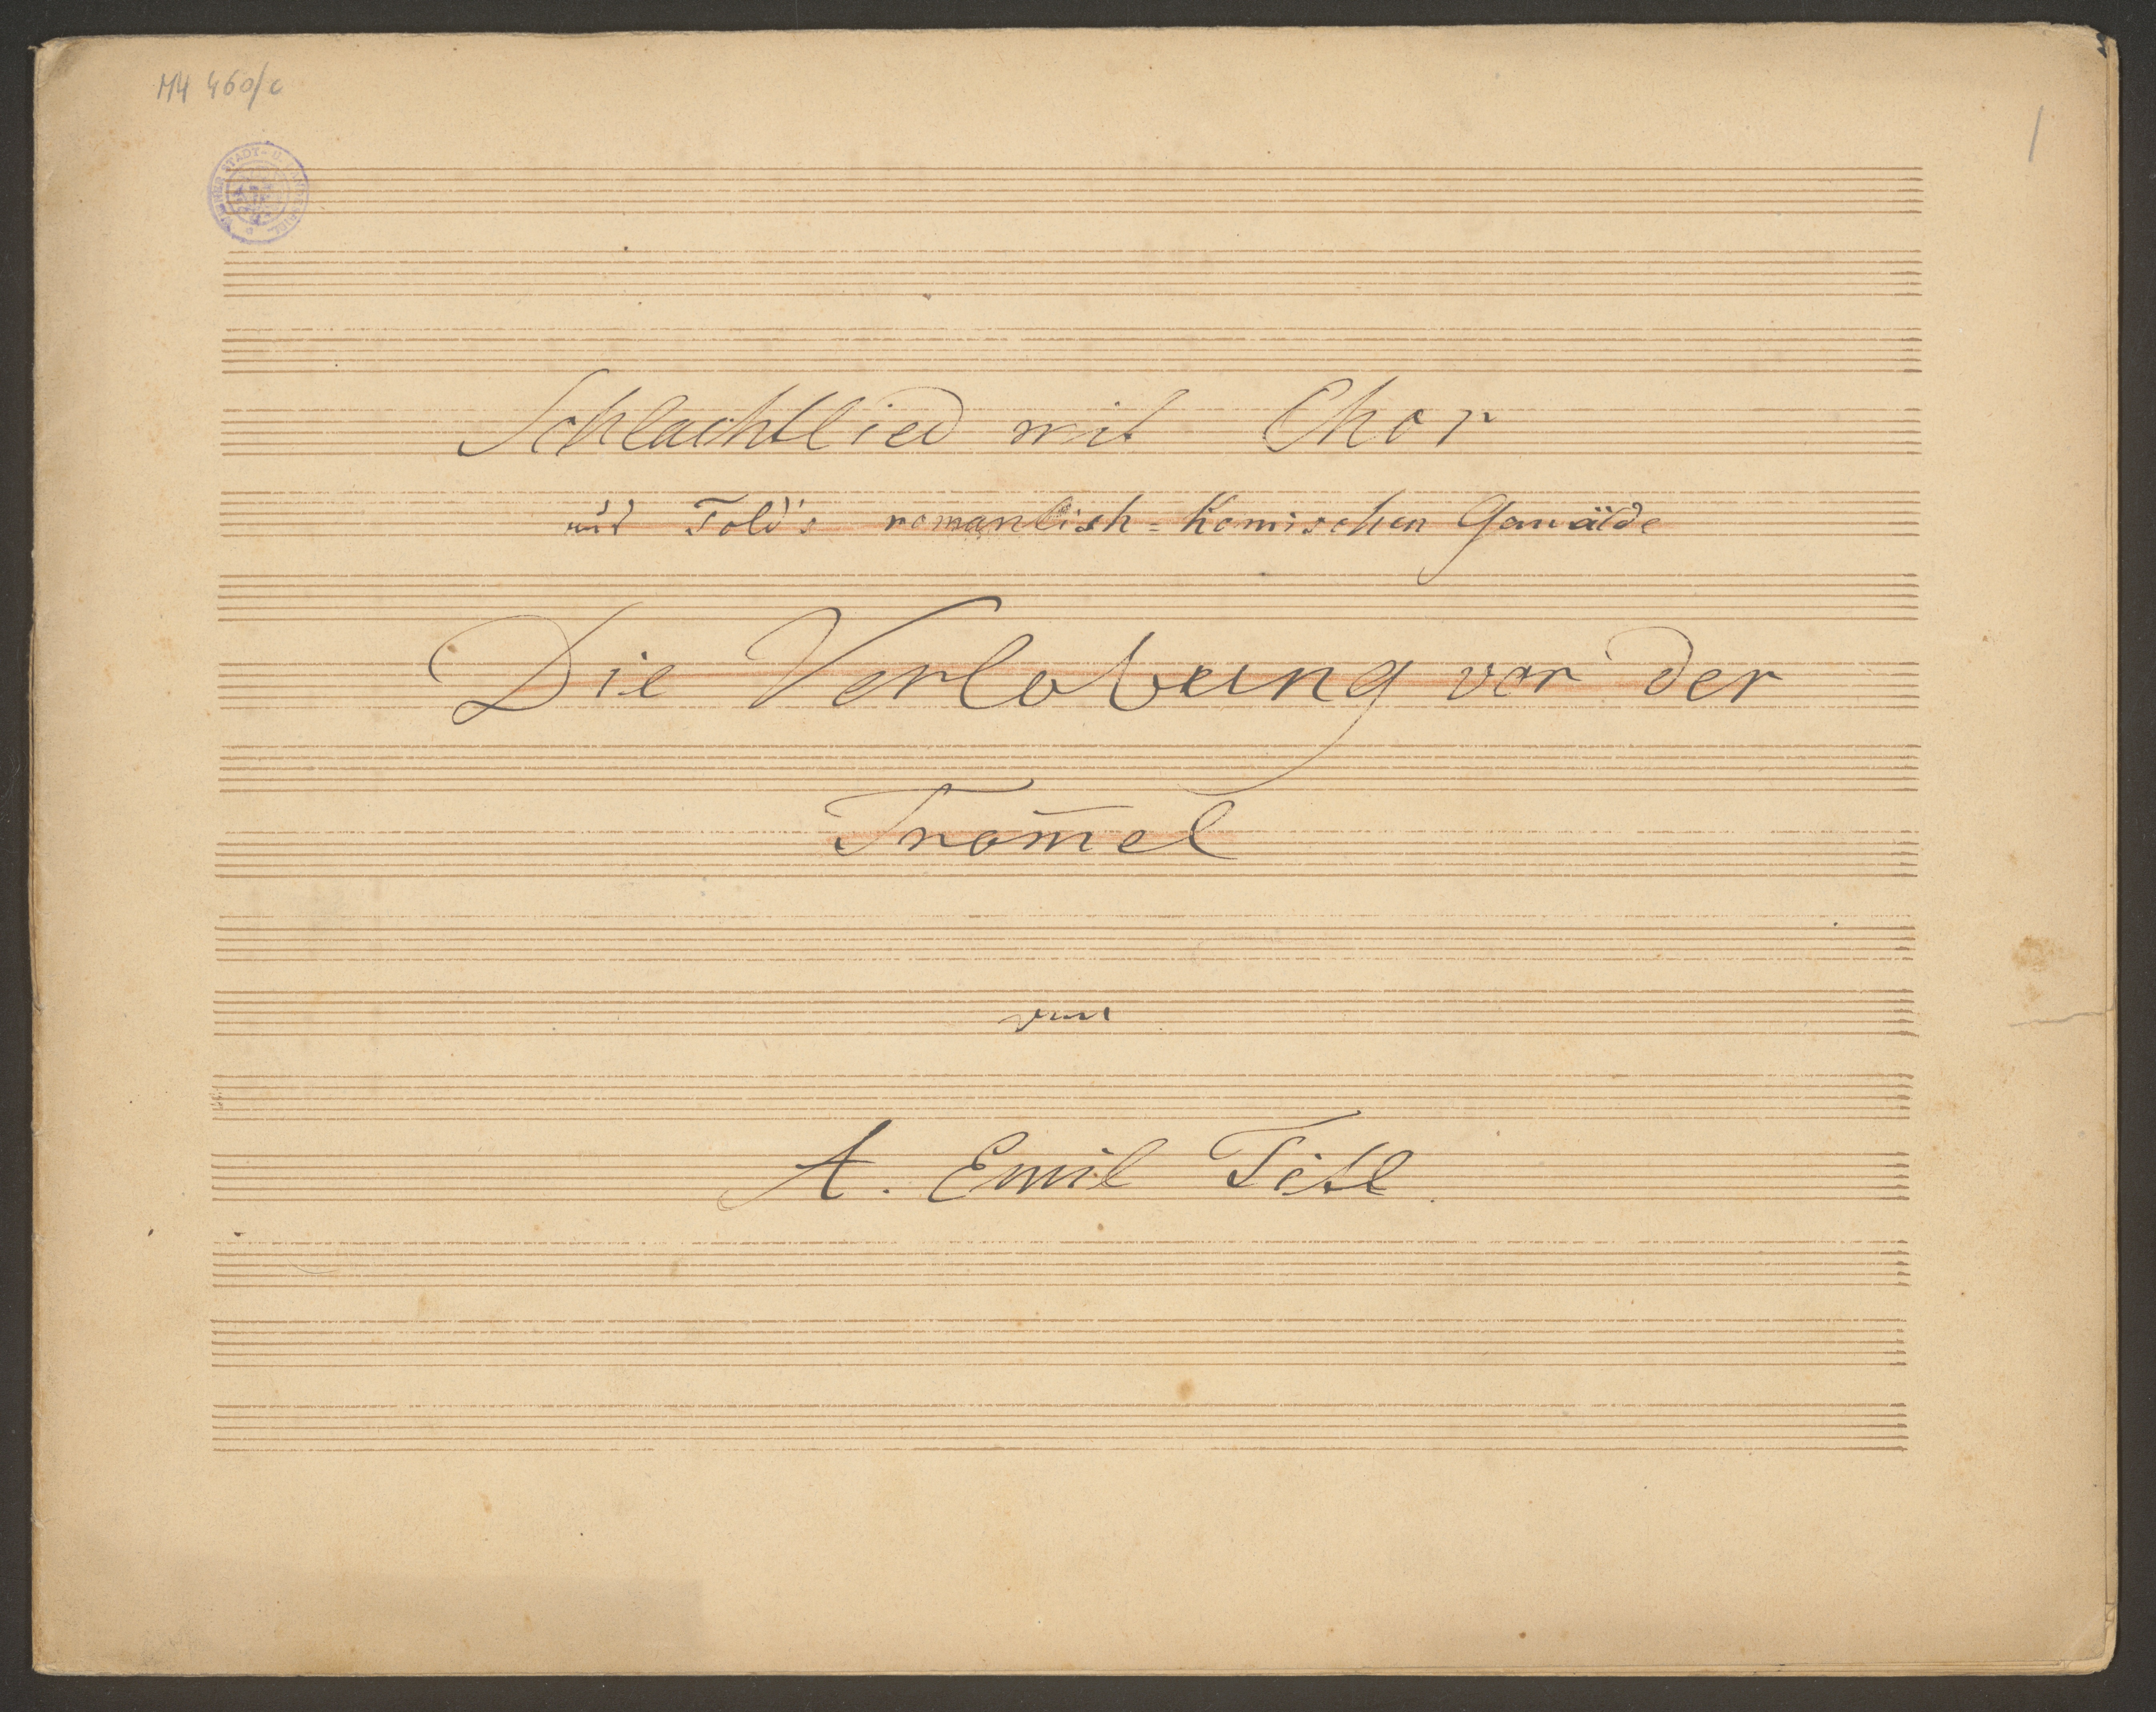 MH 460/c
1
WIENER STADT- U.
Schlachtlied mit Chor
aus Told's romantisch=Komischen Gemälde
Die Verlobung vor der
Trom̅el
von
A. Emil Titl.